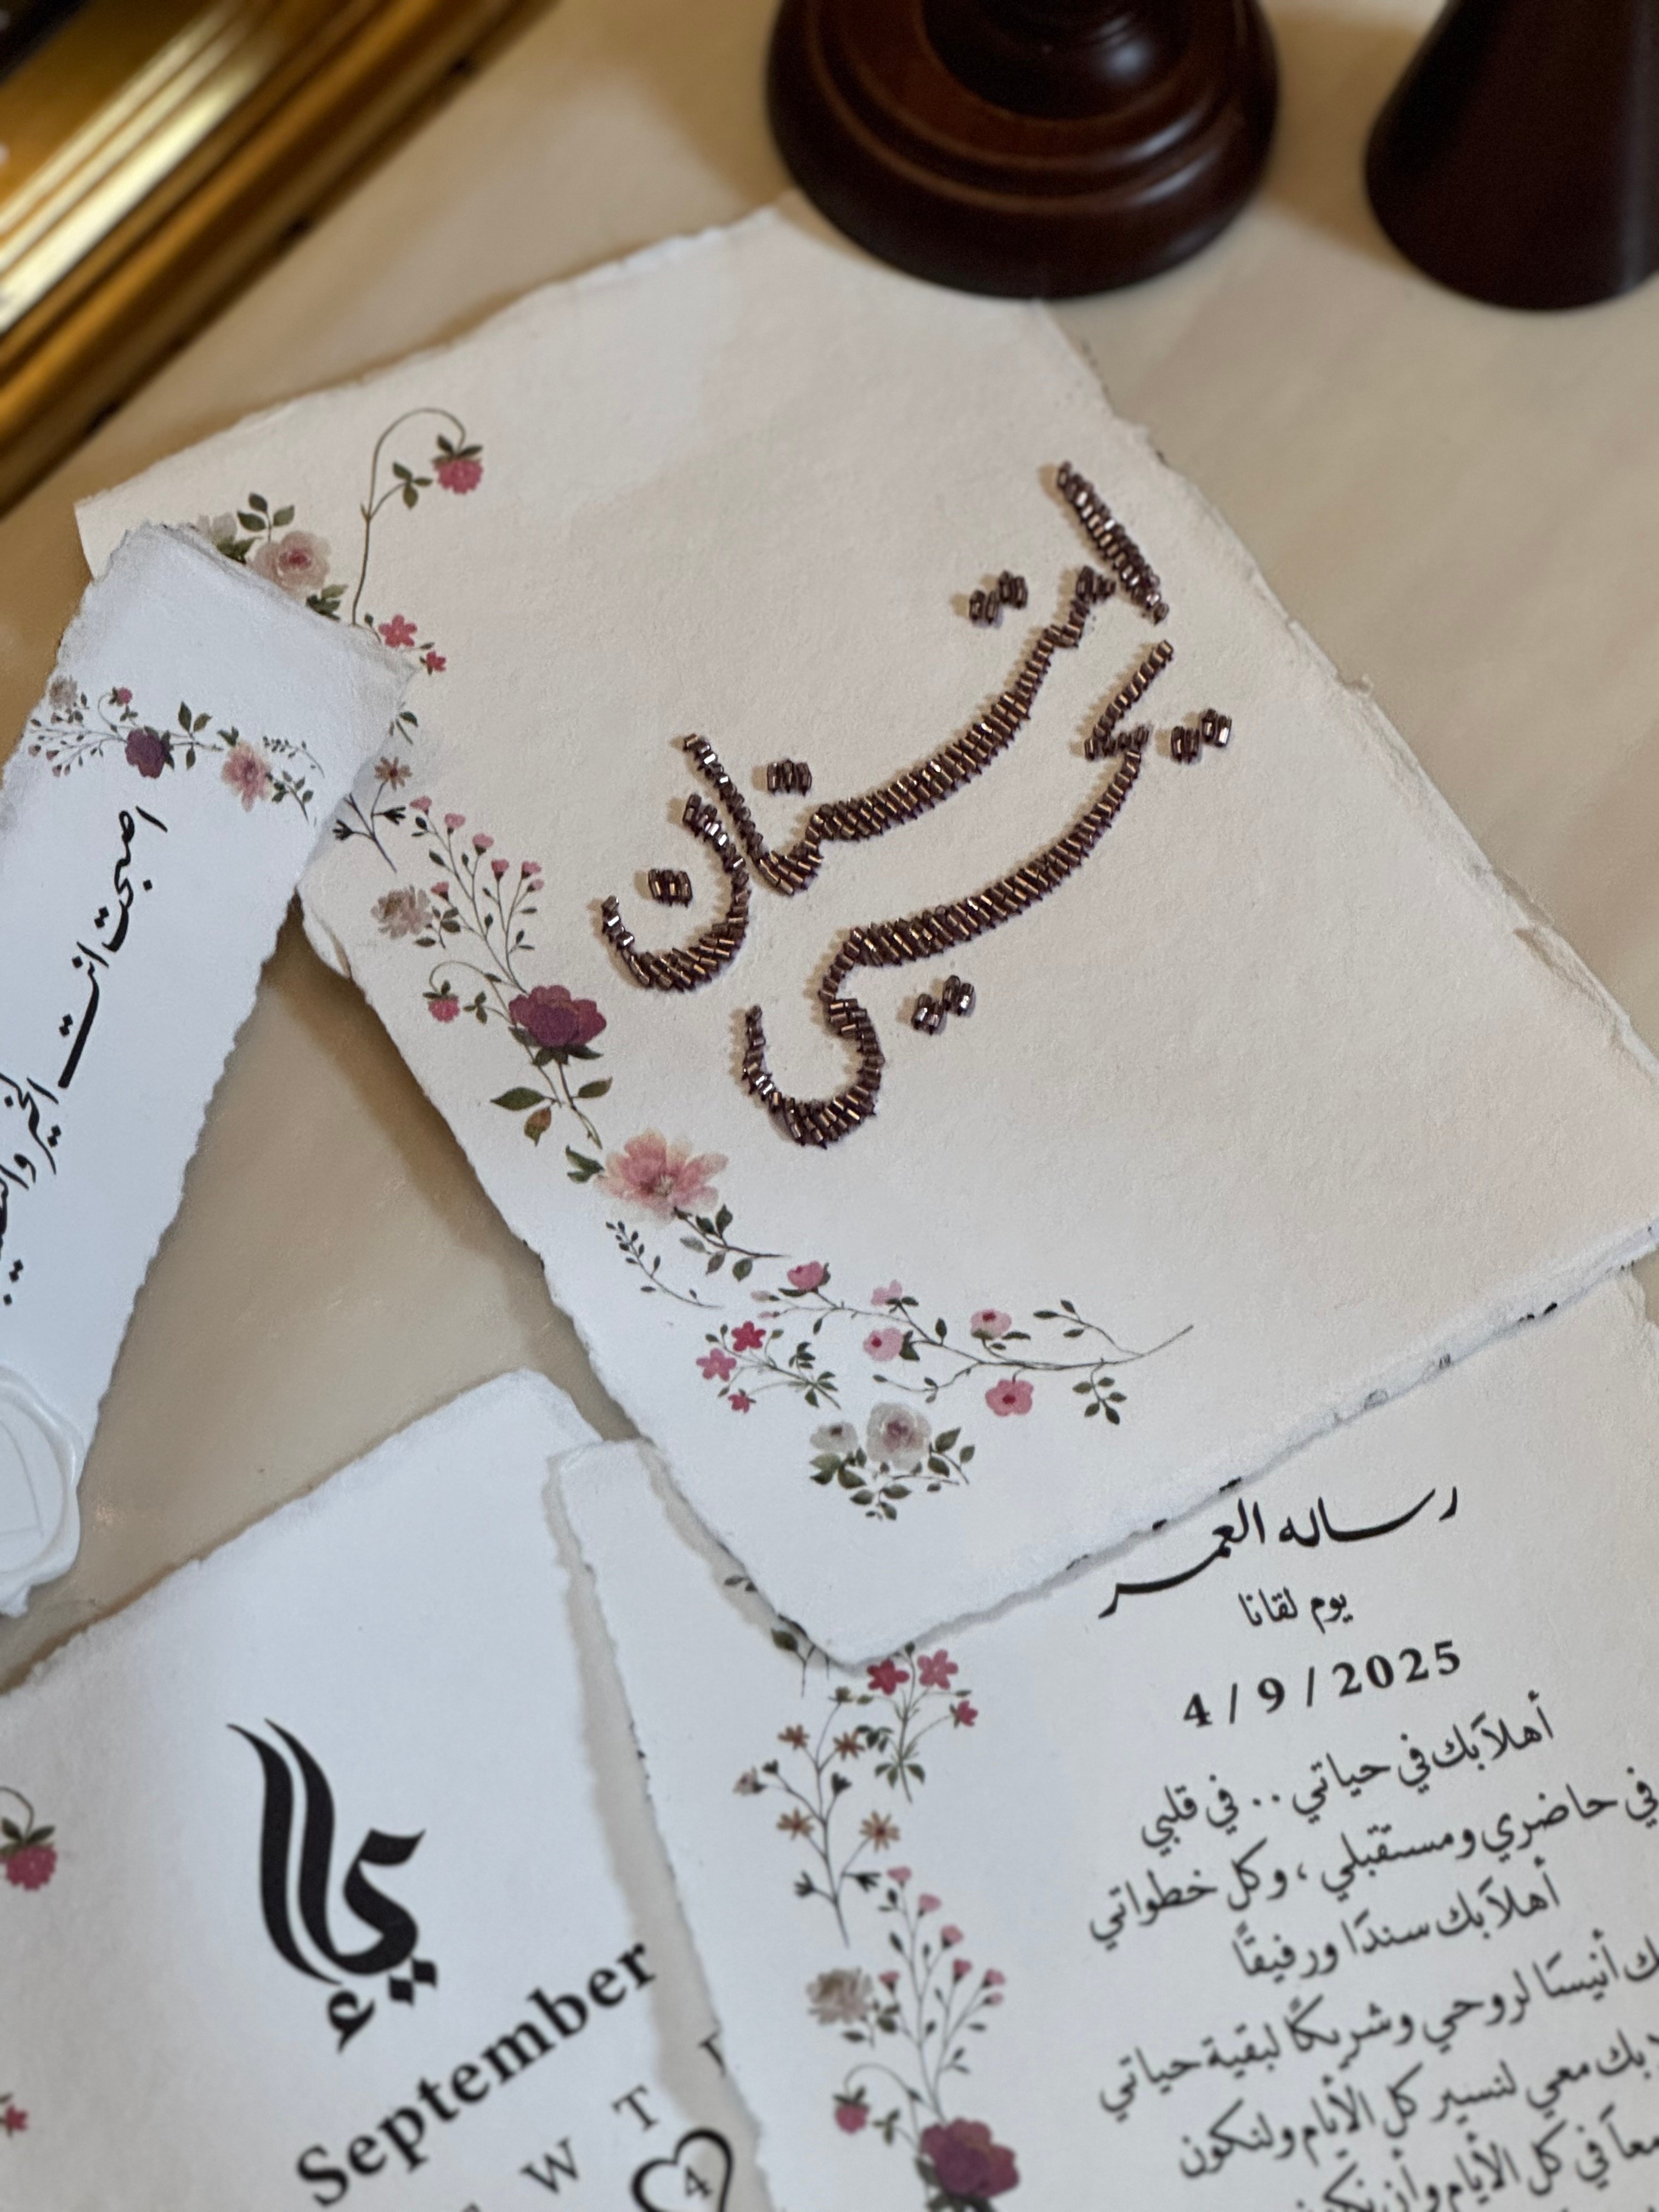 امتنان
يحيى
اصبحت انت الخير
رساله العمر
يوم لقانا
4 / 9 / 2025
أهلاً بك في حياتي .. في قلبي
في حاضري ومستقبلي ، وكل خطواتي
أهلاً بك سندًا ورفيقًا
أنيسًا لروحي وشريكًا لبقية حياتي
بك معي لنسير كل الأيام ولنكون
معاً في كل الأيام وأن
September
W T
4